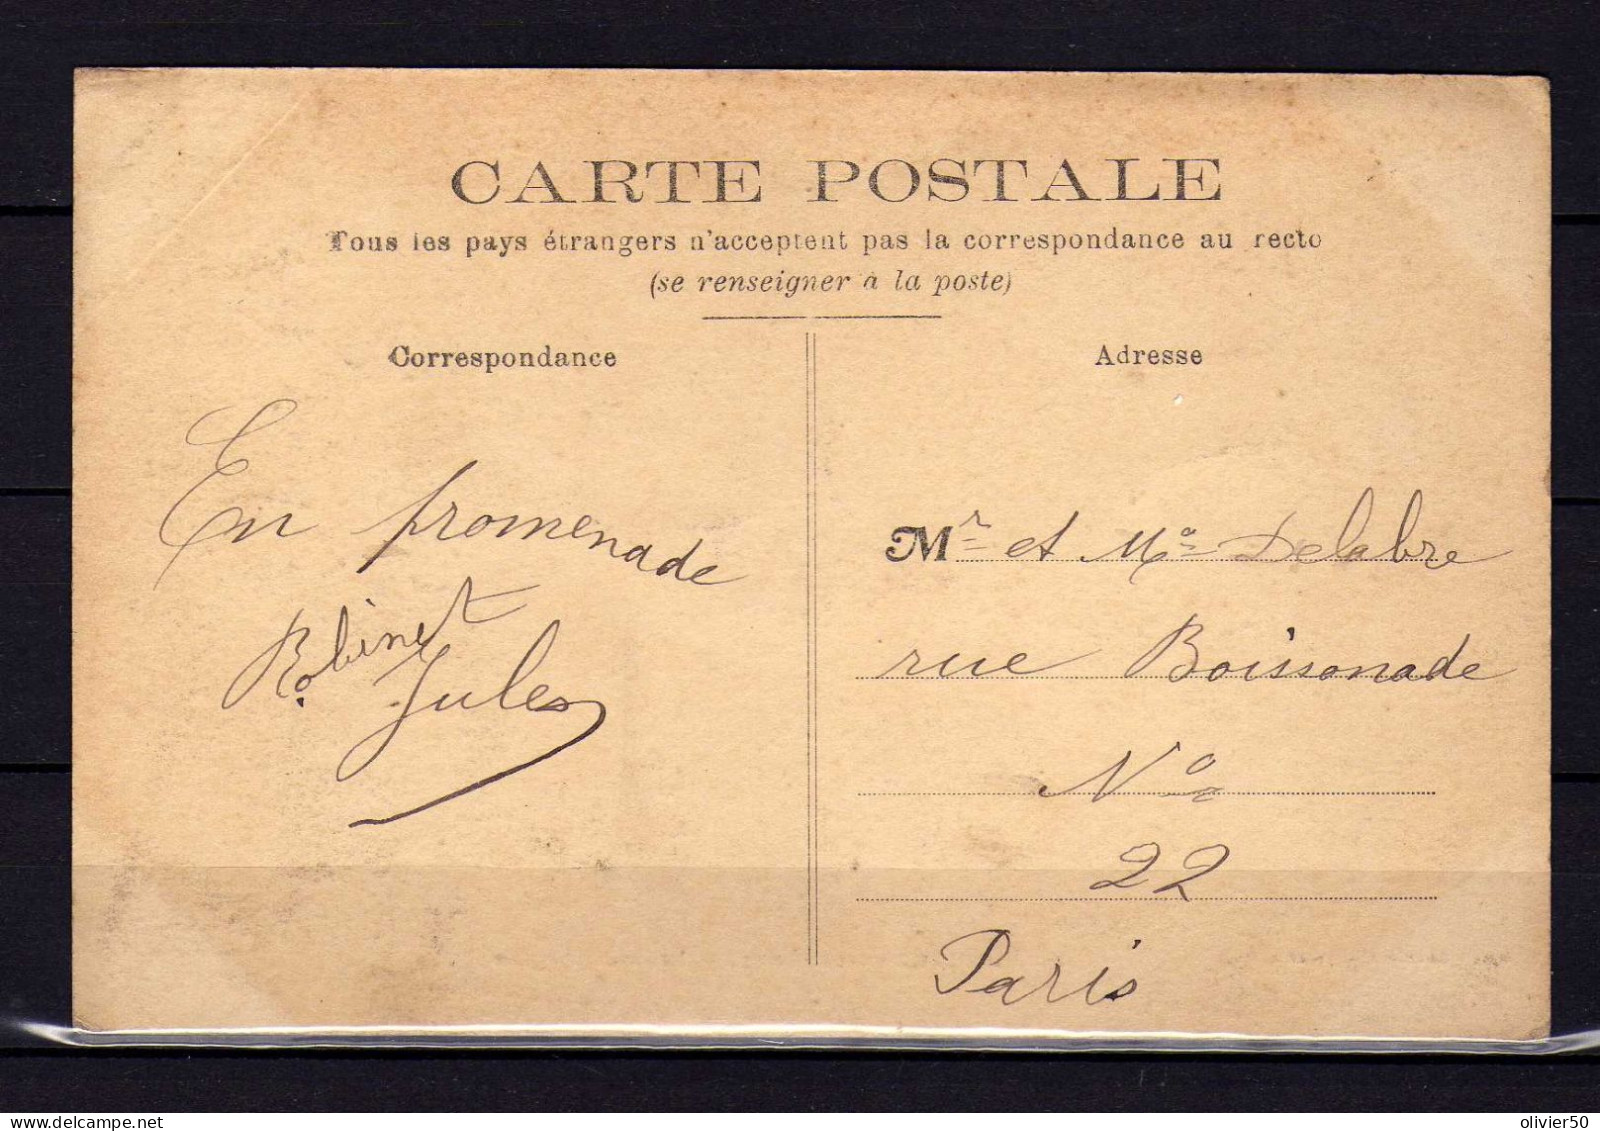 CARTE POSTALE
Tous les pays étrangers n'acceptent pas la correspondance au recto
(se renseigner à la poste)
Correspondance
Adresse
En promenade
Robinet
Jules
Mr et Me Delabre
rue Boissonade
No
22
Paris
delcampe.net
olivier50